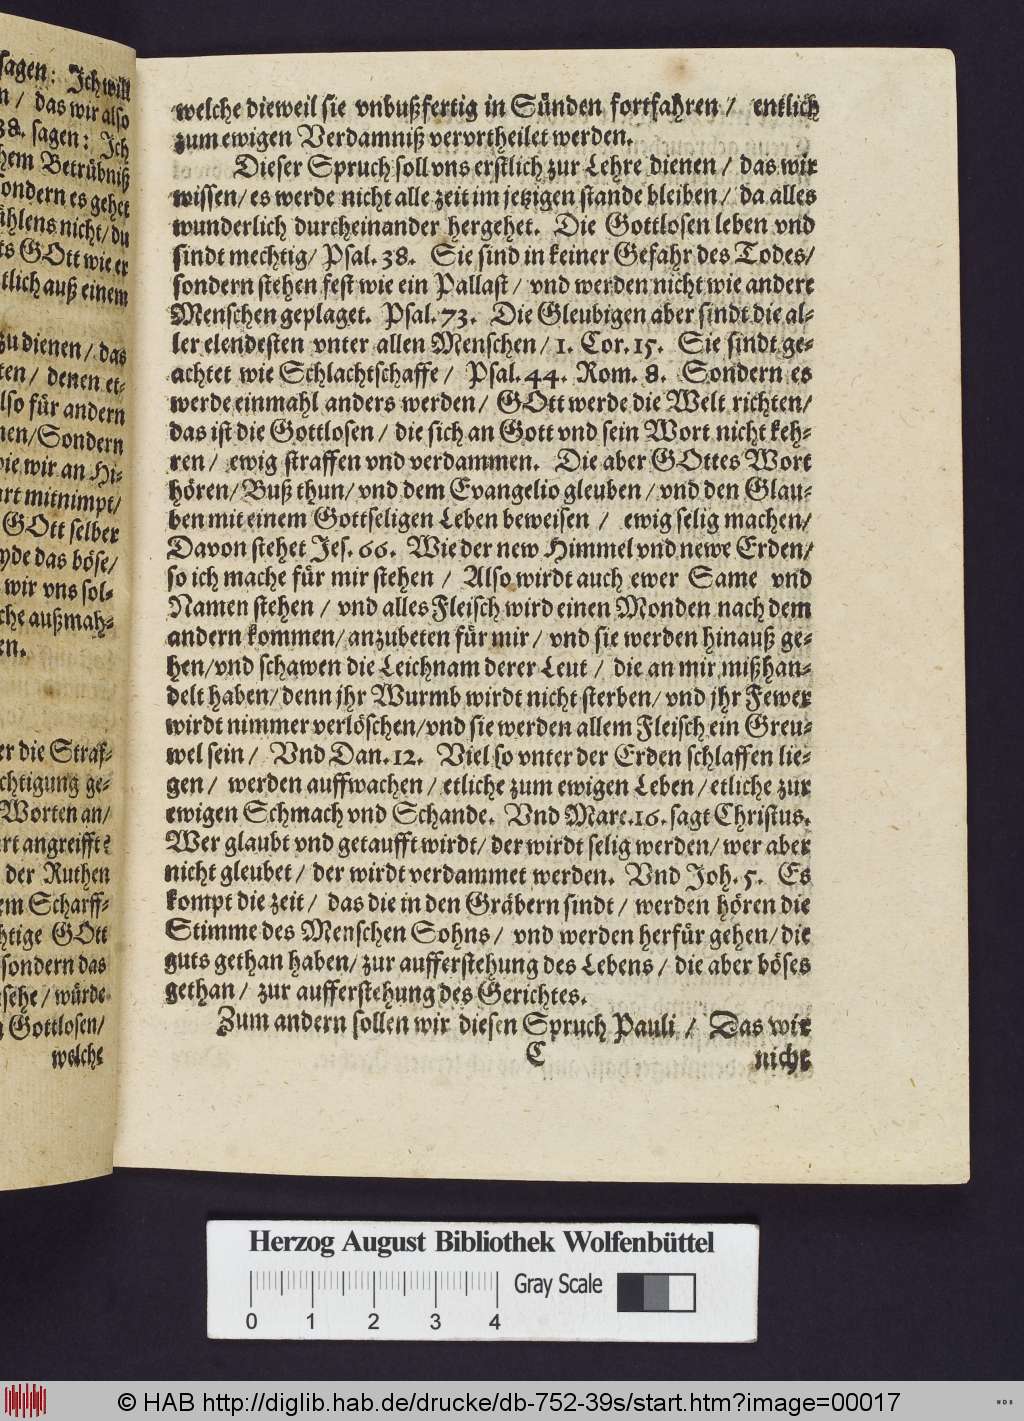 sagen: Ich will
n / das wir also
38. sagen: Ich
hem Betrübniß
sondern es gehet
ählens nicht / du
ts GOtt wie er
tlich auß einem
zu dienen / das
ten / denen et-
lso für andern
nen / Sondern
wie wir an Hi-
art mitnimpt /
GOtt selber
yde das böse /
wir vns sol-
che außmah-
en.
er die Straf-
chtigung ge-
Worten an /
art angreifft?
der Ruthen
em Scharff-
htige GOtt
sondern das
sehe / würde
Gottlosen /
welche
welche dieweil sie vnbußfertig in Sünden fortfahren / entlich
zum ewigen Verdamniß vervrtheilet werden.
Dieser Spruch soll vns erstlich zur Lehre dienen / das wir
wissen / es werde nicht alle zeit im jetzigen stande bleiben / da alles
wunderlich durcheinander hergehet. Die Gottlosen leben vnd
sindt mechtig / Psal. 38. Sie sind in keiner Gefahr des Todes /
sondern stehen fest wie ein Pallast / vnd werden nicht wie andere
Menschen geplaget. Psal. 73. Die Gleubigen aber sindt die al-
ler elendesten vnter allen Menschen / 1. Cor. 15. Sie sindt ge-
achtet wie Schlachtschaffe / Psal. 44. Rom. 8. Sondern es
werde einmahl anders werden / GOtt werde die Welt richten /
das ist die Gottlosen / die sich an Gott vnd sein Wort nicht keh-
ren / ewig straffen vnd verdammen. Die aber GOttes Wort
hören / Buß thun / vnd dem Evangelio gleuben / vnd den Glau-
ben mit einem Gottseligen Leben beweisen / ewig selig machen /
Davon stehet Jes. 66. Wie der new Himmel vnd newe Erden /
so ich mache für mir stehen / Also wirdt auch ewer Same vnd
Namen stehen / vnd alles Fleisch wird einen Monden nach dem
andern kommen / anzubeten für mir / vnd sie werden hinauß ge-
hen / vnd schawen die Leichnam derer Leut / die an mir mißhan-
delt haben / denn jhr Wurmb wirdt nicht sterben / vnd jhr Fewer
wirdt nimmer verlöschen / vnd sie werden allem Fleisch ein Greu-
wel sein / Vnd Dan. 12. Viel so vnter der Erden schlaffen lie-
gen / werden auffwachen / etliche zum ewigen Leben / etliche zur
ewigen Schmach vnd Schande. Vnd Marc. 16. sagt Christus.
Wer glaubt vnd getaufft wirdt / der wirdt selig werden / wer aber
nicht gleubet / der wirdt verdammet werden. Vnd Joh. 5. Es
kompt die zeit / das die in den Gräbern sindt / werden hören die
Stimme des Menschen Sohns / vnd werden herfür gehen / die
guts gethan haben / zur aufferstehung des Lebens / die aber böses
gethan / zur aufferstehung des Gerichtes.
Zum andern sollen wir diesen Spruch Pauli / Das wir
C nicht
Herzog August Bibliothek Wolfenbüttel
Gray Scale
0 1 2 3 4
© HAB http://diglib.hab.de/drucke/db-752-39s/start.htm?image=00017